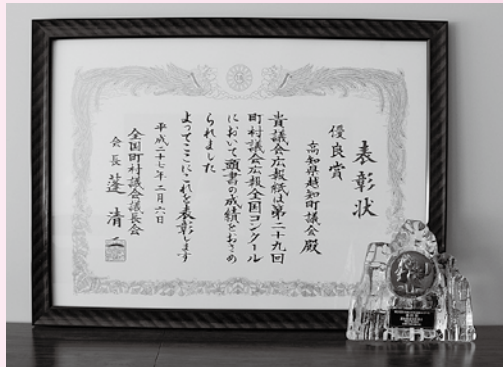 表彰状
優良賞
高知県越知町議会殿
貴議会広報紙は第二十九回
町村議会広報全国コンクール
において頭書の成績をおさめ
られました
よってここにこれを表彰します
平成二十七年二月六日
全国町村議会議長会
会長 蓬 清二